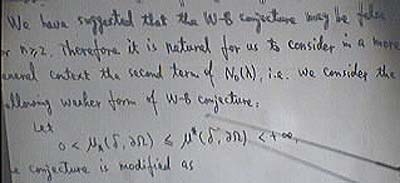 We have suggested that the W-B conjecture may be false
n≥2. Therefore it is natural for us to consider in a more
eneral context the second term of N₀(λ), i.e. we consider the
llowing weaker form of W-B conjecture:
Let
0 < μ_*(δ, ∂Ω) ≤ μ^*(δ, ∂Ω) < +∞,
e conjecture is modified as